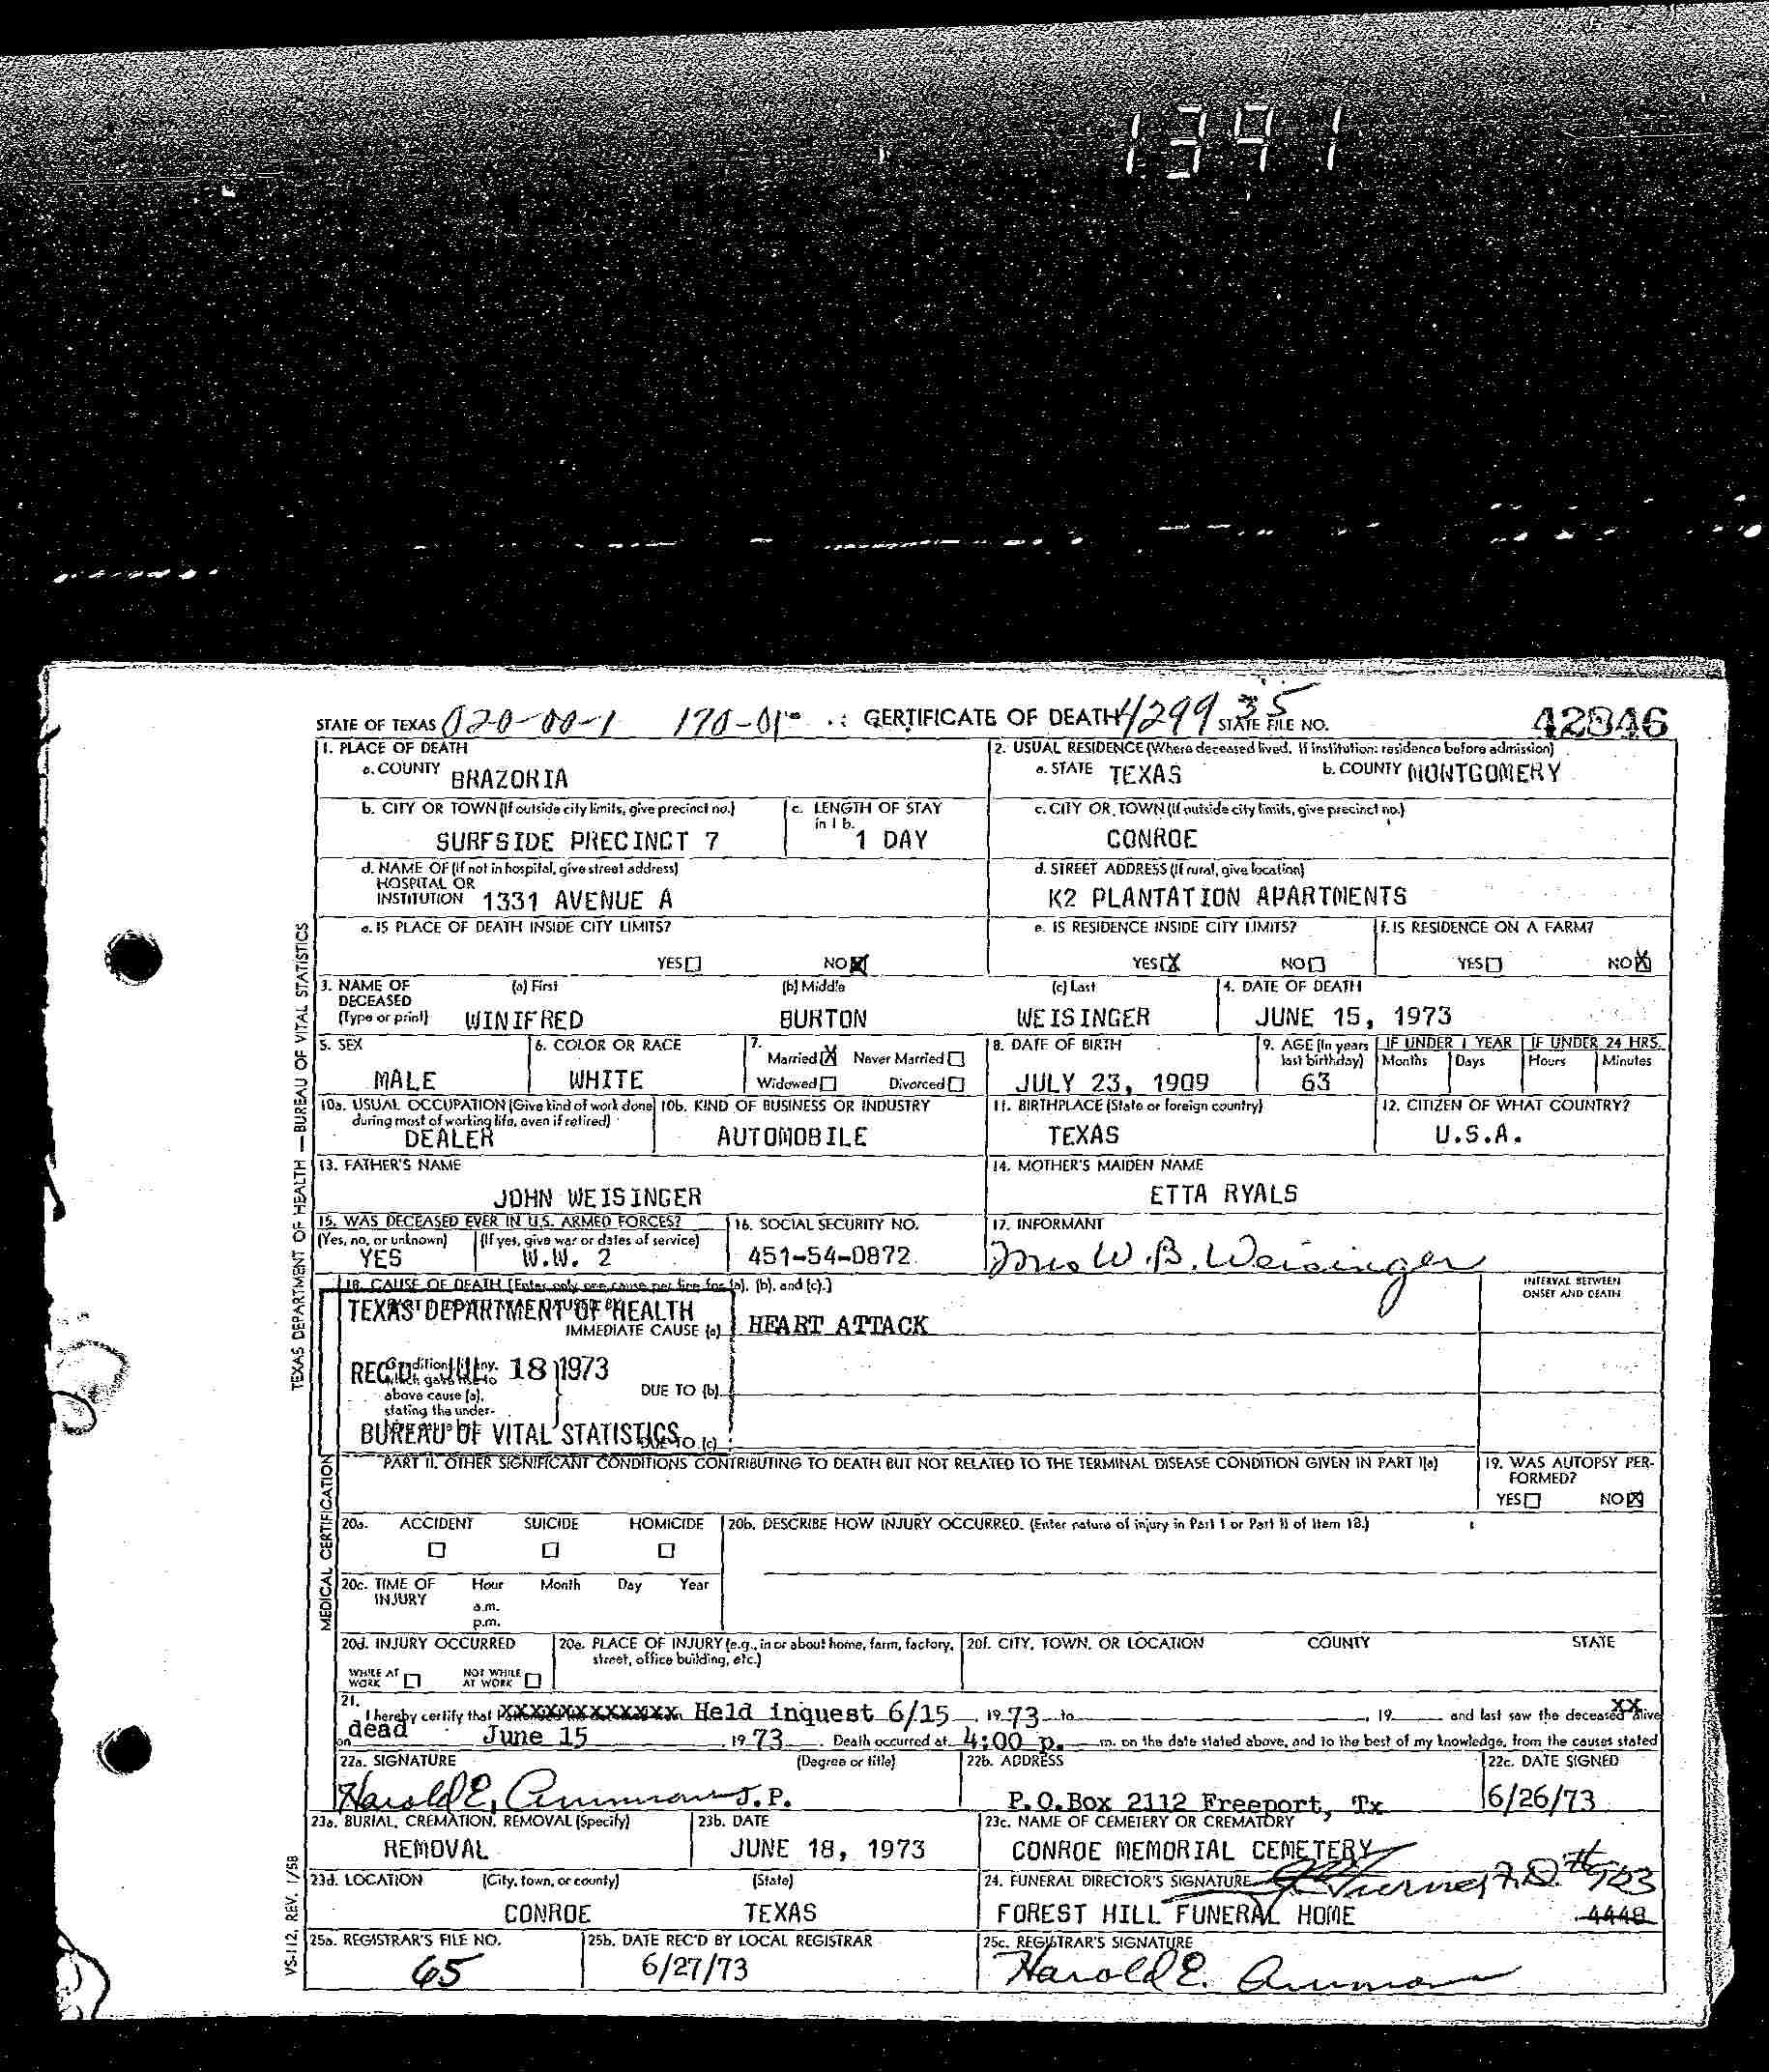 1391
STATE OF TEXAS 020-00-1 170-01 CERTIFICATE OF DEATH 4299 35 STATE FILE NO. 42846
1. PLACE OF DEATH
a. COUNTY BRAZORIA
2. USUAL RESIDENCE (Where deceased lived. If institution: residence before admission)
a. STATE TEXAS b. COUNTY MONTGOMERY
b. CITY OR TOWN (If outside city limits, give precinct no.)
SURFSIDE PRECINCT 7
c. LENGTH OF STAY in 1 b.
1 DAY
c. CITY OR TOWN (If outside city limits, give precinct no.)
CONROE
d. NAME OF (If not in hospital, give street address)
HOSPITAL OR
INSTITUTION 1331 AVENUE A
d. STREET ADDRESS (If rural, give location)
K2 PLANTATION APARTMENTS
e. IS PLACE OF DEATH INSIDE CITY LIMITS?
YES NO X
e. IS RESIDENCE INSIDE CITY LIMITS?
YES X NO
f. IS RESIDENCE ON A FARM?
YES NO X
3. NAME OF DECEASED (Type or print)
(a) First (b) Middle (c) Last
WINIFRED BURTON WEISINGER
4. DATE OF DEATH
JUNE 15, 1973
5. SEX
MALE
6. COLOR OR RACE
WHITE
7. Married X Never Married
Widowed Divorced
8. DATE OF BIRTH
JULY 23, 1909
9. AGE (In years last birthday)
63
IF UNDER 1 YEAR
Months Days
IF UNDER 24 HRS.
Hours Minutes
10a. USUAL OCCUPATION (Give kind of work done during most of working life, even if retired)
DEALER
10b. KIND OF BUSINESS OR INDUSTRY
AUTOMOBILE
11. BIRTHPLACE (State or foreign country)
TEXAS
12. CITIZEN OF WHAT COUNTRY?
U.S.A.
13. FATHER'S NAME
JOHN WEISINGER
14. MOTHER'S MAIDEN NAME
ETTA RYALS
15. WAS DECEASED EVER IN U.S. ARMED FORCES?
(Yes, no, or unknown) (If yes, give war or dates of service)
YES W.W. 2
16. SOCIAL SECURITY NO.
451-54-0872
17. INFORMANT
Mrs W. B. Weisinger
18. CAUSE OF DEATH [Enter only one cause per line for (a), (b), and (c).]
INTERVAL BETWEEN ONSET AND DEATH
TEXAS DEPARTMENT OF HEALTH
IMMEDIATE CAUSE (a) HEART ATTACK
REC'D JUL 18 1973
above cause (a),
stating the under-
DUE TO (b)
BUREAU OF VITAL STATISTICS
DUE TO (c)
PART II. OTHER SIGNIFICANT CONDITIONS CONTRIBUTING TO DEATH BUT NOT RELATED TO THE TERMINAL DISEASE CONDITION GIVEN IN PART I(a)
19. WAS AUTOPSY PERFORMED?
YES NO X
20a. ACCIDENT SUICIDE HOMICIDE
20b. DESCRIBE HOW INJURY OCCURRED. (Enter nature of injury in Part I or Part II of Item 18.)
20c. TIME OF INJURY Hour Month Day Year
a.m.
p.m.
20d. INJURY OCCURRED
WHILE AT WORK NOT WHILE AT WORK
20e. PLACE OF INJURY (e.g., in or about home, farm, factory, street, office building, etc.)
20f. CITY, TOWN, OR LOCATION COUNTY STATE
21. I hereby certify that XXXXXXXXXXXXX Held inquest 6/15, 1973 to , 19 and last saw the deceased XX alive
dead on June 15 1973. Death occurred at 4:00 p. m. on the date stated above, and to the best of my knowledge, from the causes stated
22a. SIGNATURE (Degree or title)
Harold E. J.P.
22b. ADDRESS
P.O.Box 2112 Freeport, Tx
22c. DATE SIGNED
6/26/73
23a. BURIAL, CREMATION, REMOVAL (Specify)
REMOVAL
23b. DATE
JUNE 18, 1973
23c. NAME OF CEMETERY OR CREMATORY
CONROE MEMORIAL CEMETERY
23d. LOCATION (City, town, or county) (State)
CONROE TEXAS
24. FUNERAL DIRECTOR'S SIGNATURE
F.D. #
FOREST HILL FUNERAL HOME 4448
25a. REGISTRAR'S FILE NO.
65
25b. DATE REC'D BY LOCAL REGISTRAR
6/27/73
25c. REGISTRAR'S SIGNATURE
Harold E.
TEXAS DEPARTMENT OF HEALTH — BUREAU OF VITAL STATISTICS
MEDICAL CERTIFICATION
VS-112, REV. 1/58